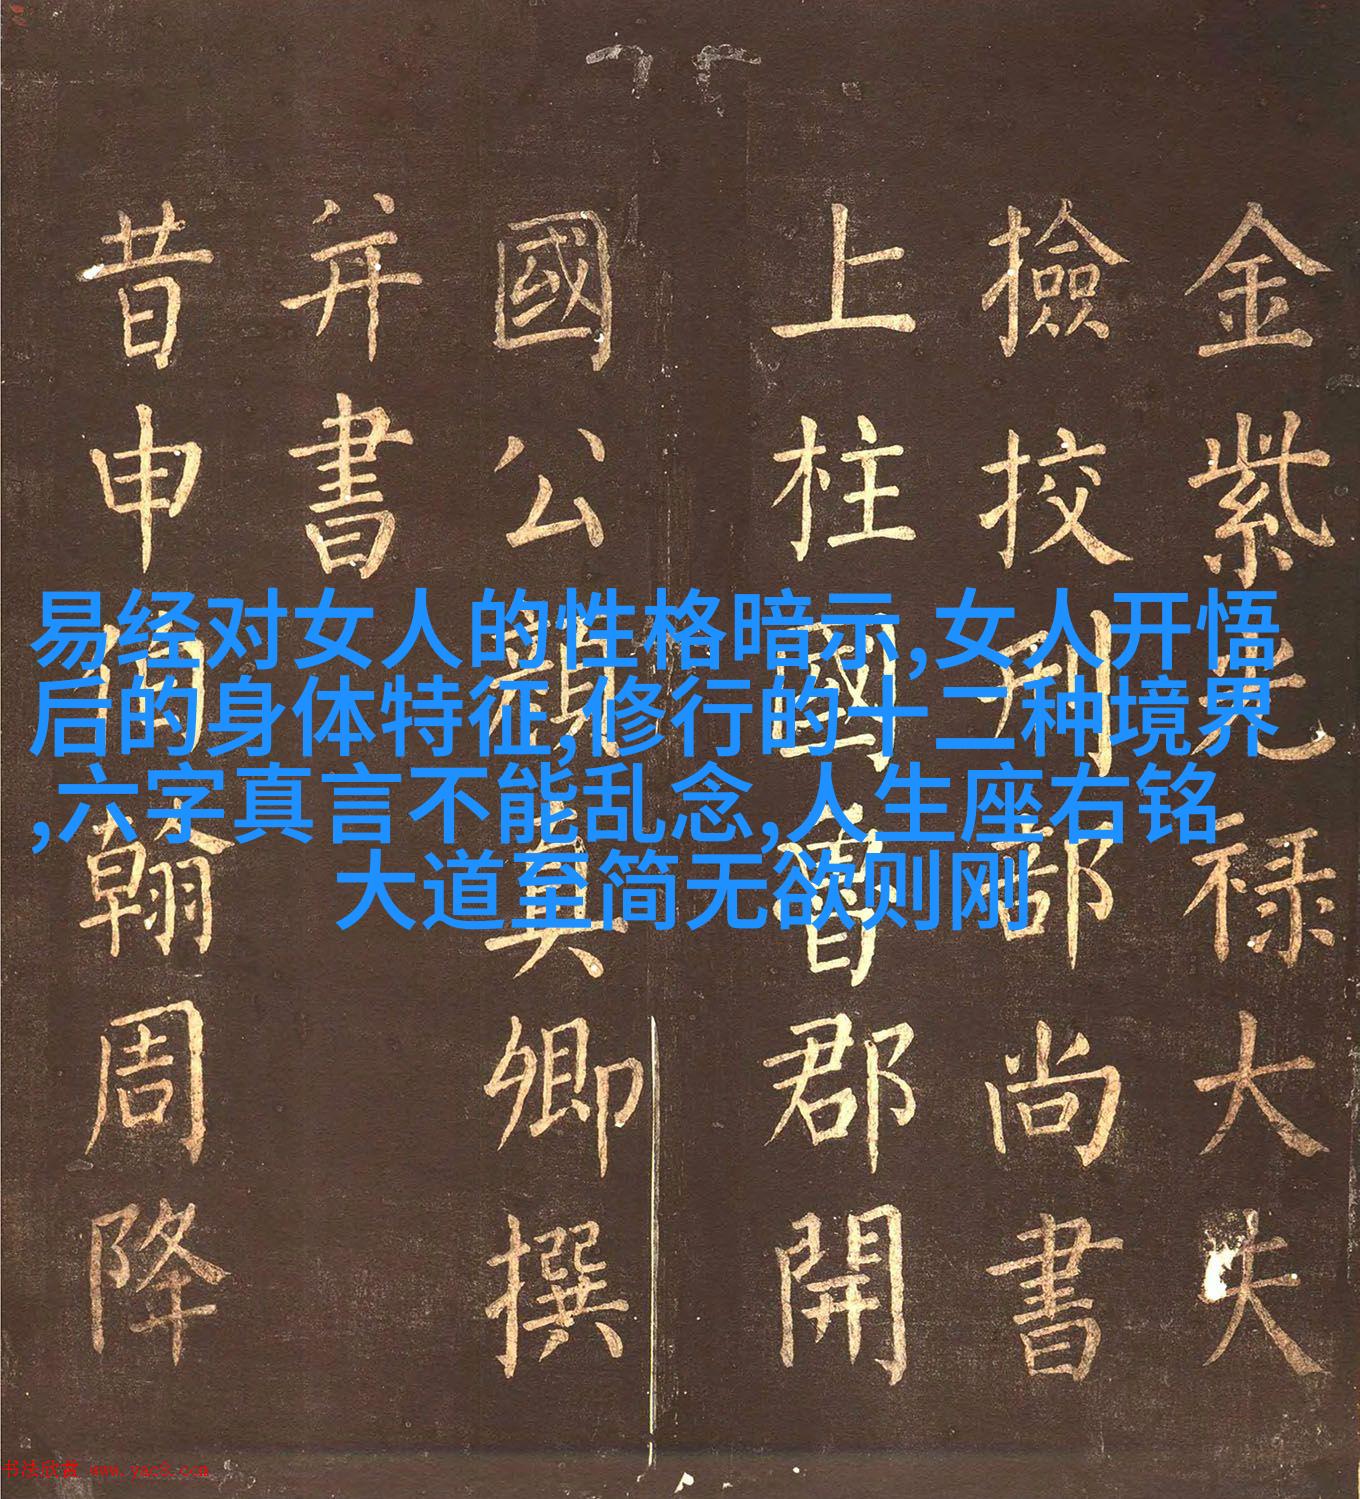 易经对女人的性格暗示,女人开悟
后的身体特征,修行的十二种境界
,六字真言不能乱念,人生座右铭
大道至简无欲则刚
金紫光禄大夫
撿挍刑部尚書
上柱國魯郡開
國公顏真卿撰
并書
昔申伯翰周降
书法欣赏 www.yac8.com